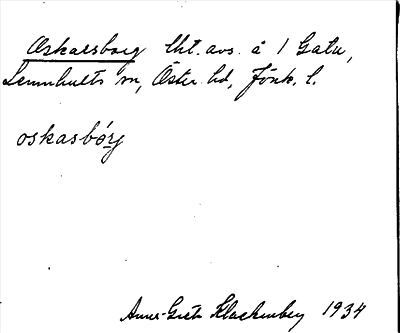 Oskarsborg lht. avs. å 1 Gatu,
Lemnhults sn, Östra hd, Jönk. l.
oskasbórj
Anna-Greta Klackenberg 1934